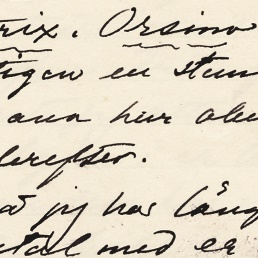 rix. Orsino
tigen en stun
ana hur obe
derefter.
på jag har lång
tal med er